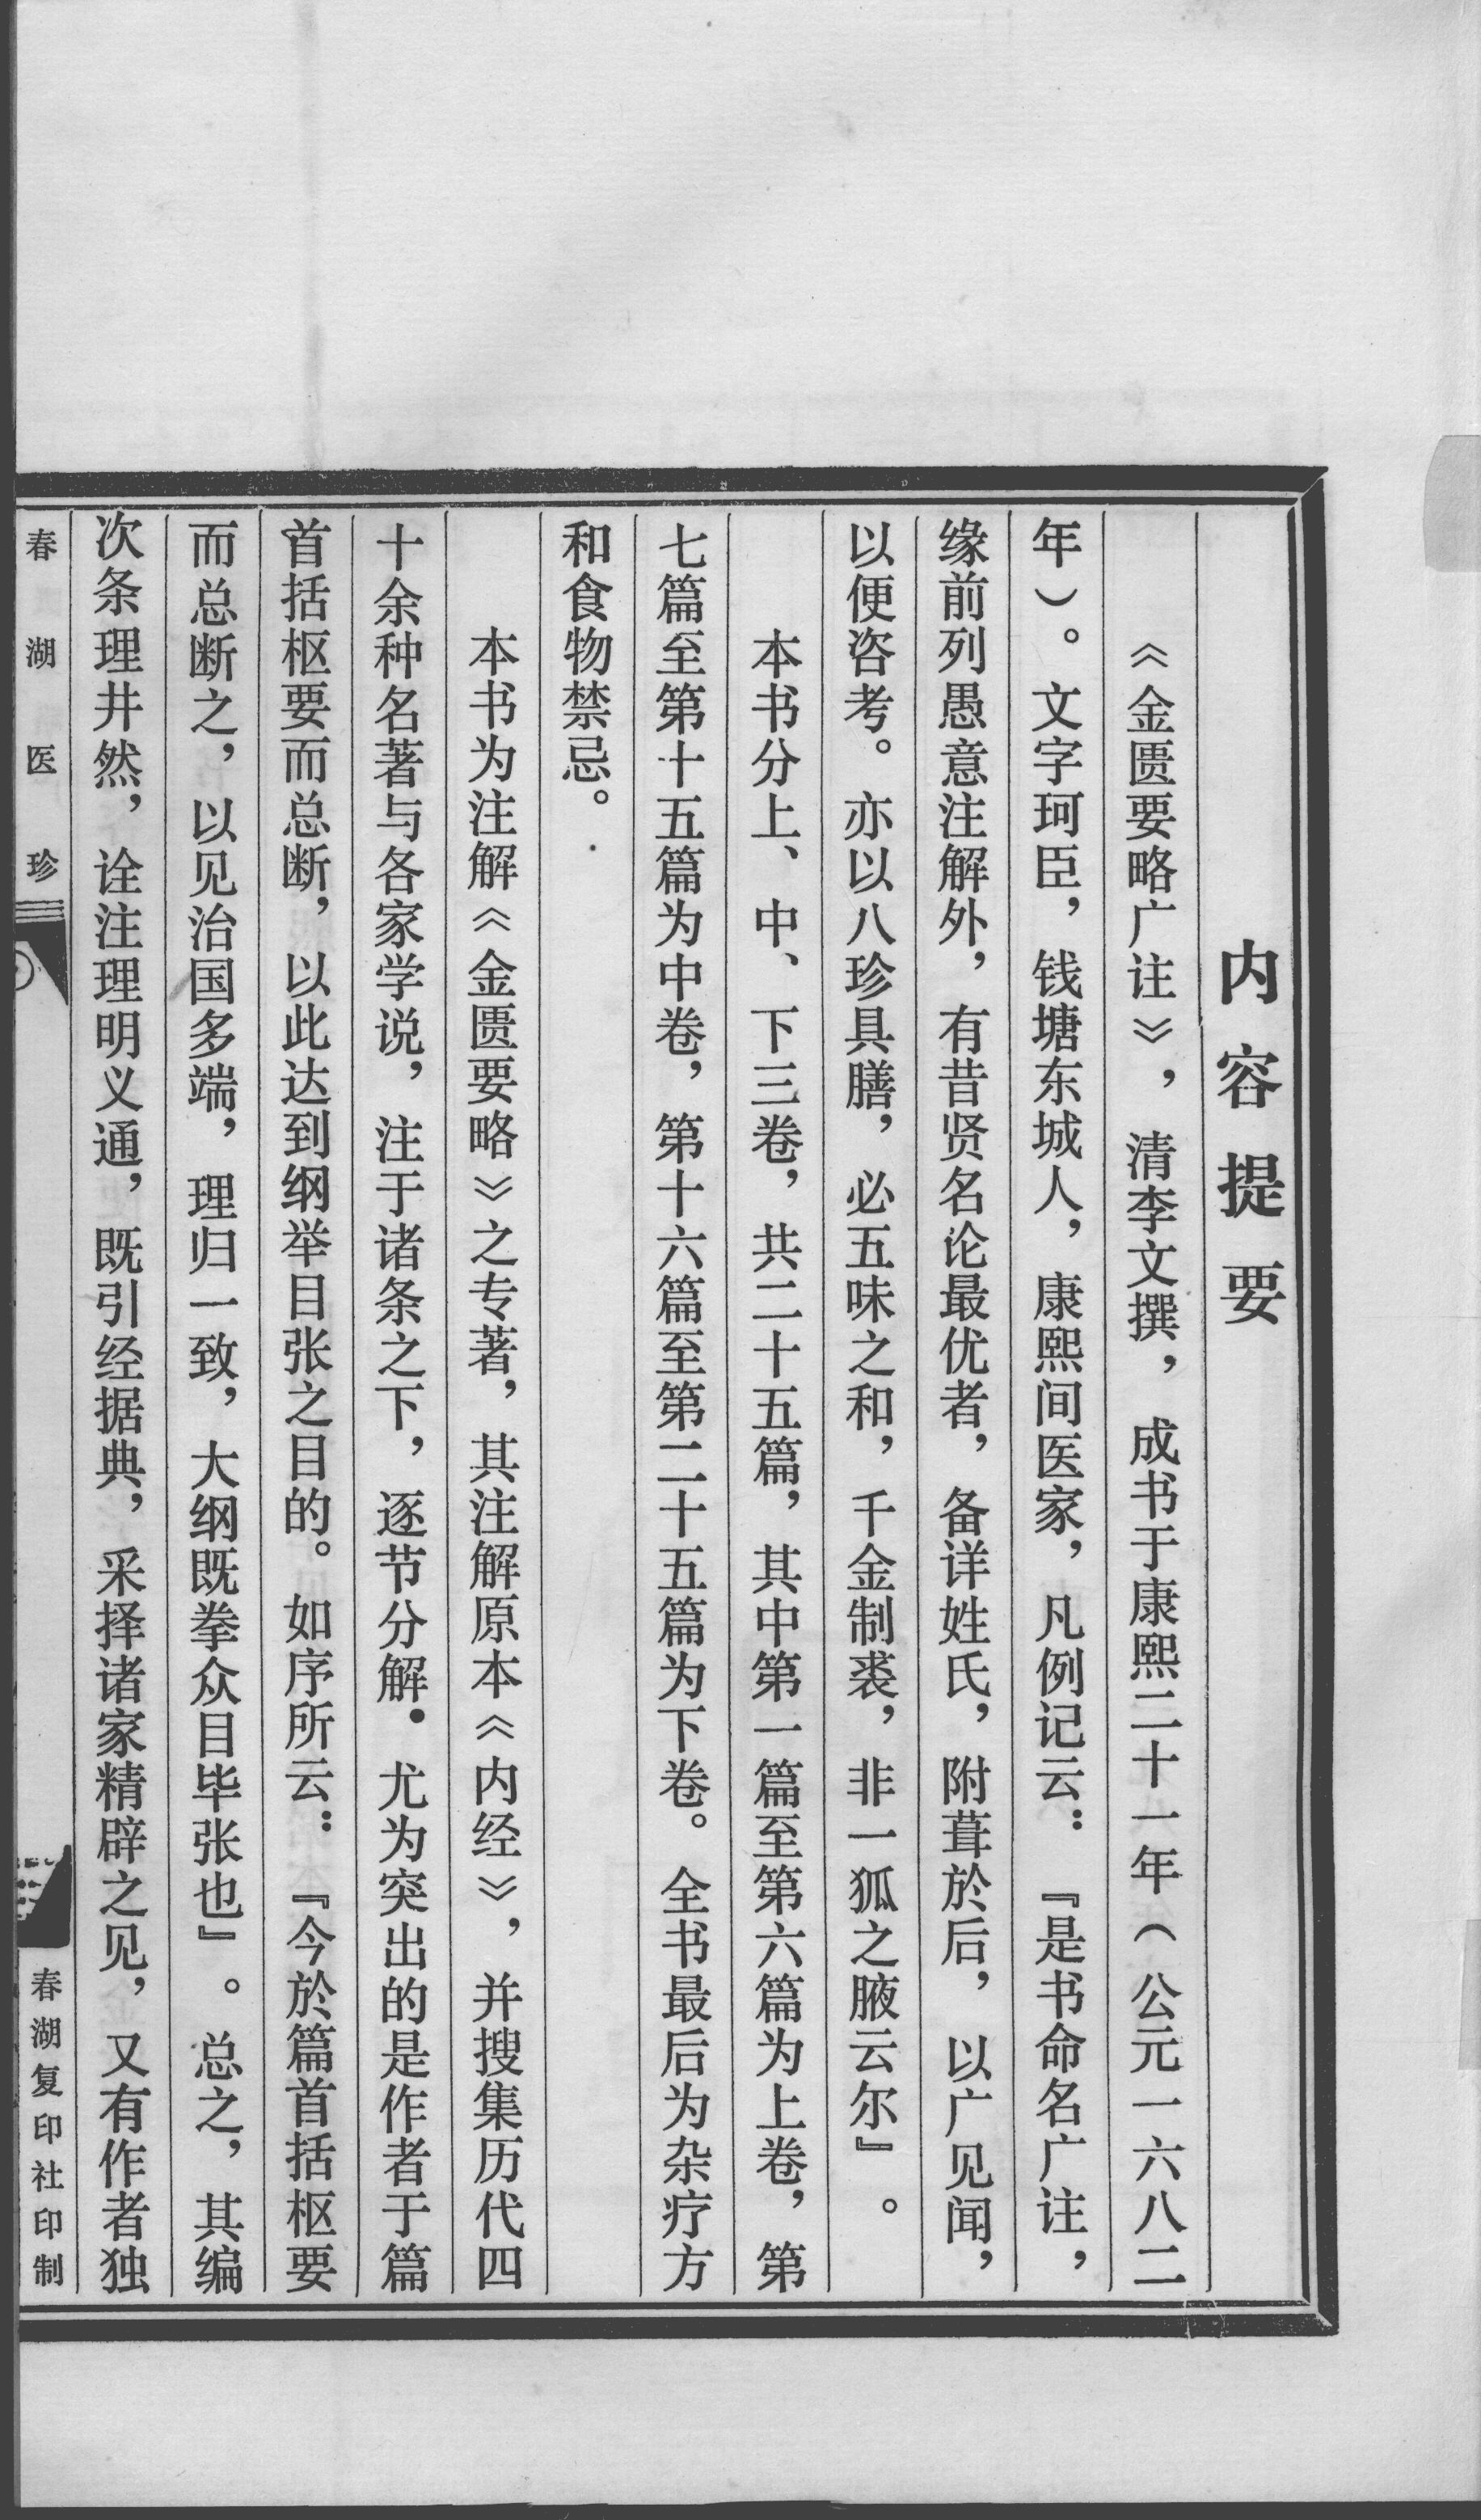 内容提要
《金匮要略广注》，清李文撰，成书于康熙二十一年（公元一六八二
年）。文字珂臣，钱塘东城人，康熙间医家，凡例记云：『是书命名广注，
缘前列愚意注解外，有昔贤名论最优者，备详姓氏，附葺於后，以广见闻，
以便咨考。亦以八珍具膳，必五味之和，千金制裘，非一狐之腋云尔』。
本书分上、中、下三卷，共二十五篇，其中第一篇至第六篇为上卷，第
七篇至第十五篇为中卷，第十六篇至第二十五篇为下卷。全书最后为杂疗方
和食物禁忌。
本书为注解《金匮要略》之专著，其注解原本《内经》，并搜集历代四
十余种名著与各家学说，注于诸条之下，逐节分解．尤为突出的是作者于篇
首括枢要而总断，以此达到纲举目张之目的。如序所云：『今於篇首括枢要
而总断之，以见治国多端，理归一致，大纲既拳众目毕张也』。总之，其编
次条理井然，诠注理明义通，既引经据典，采择诸家精辟之见，又有作者独
春湖医珍
春湖复印社印制